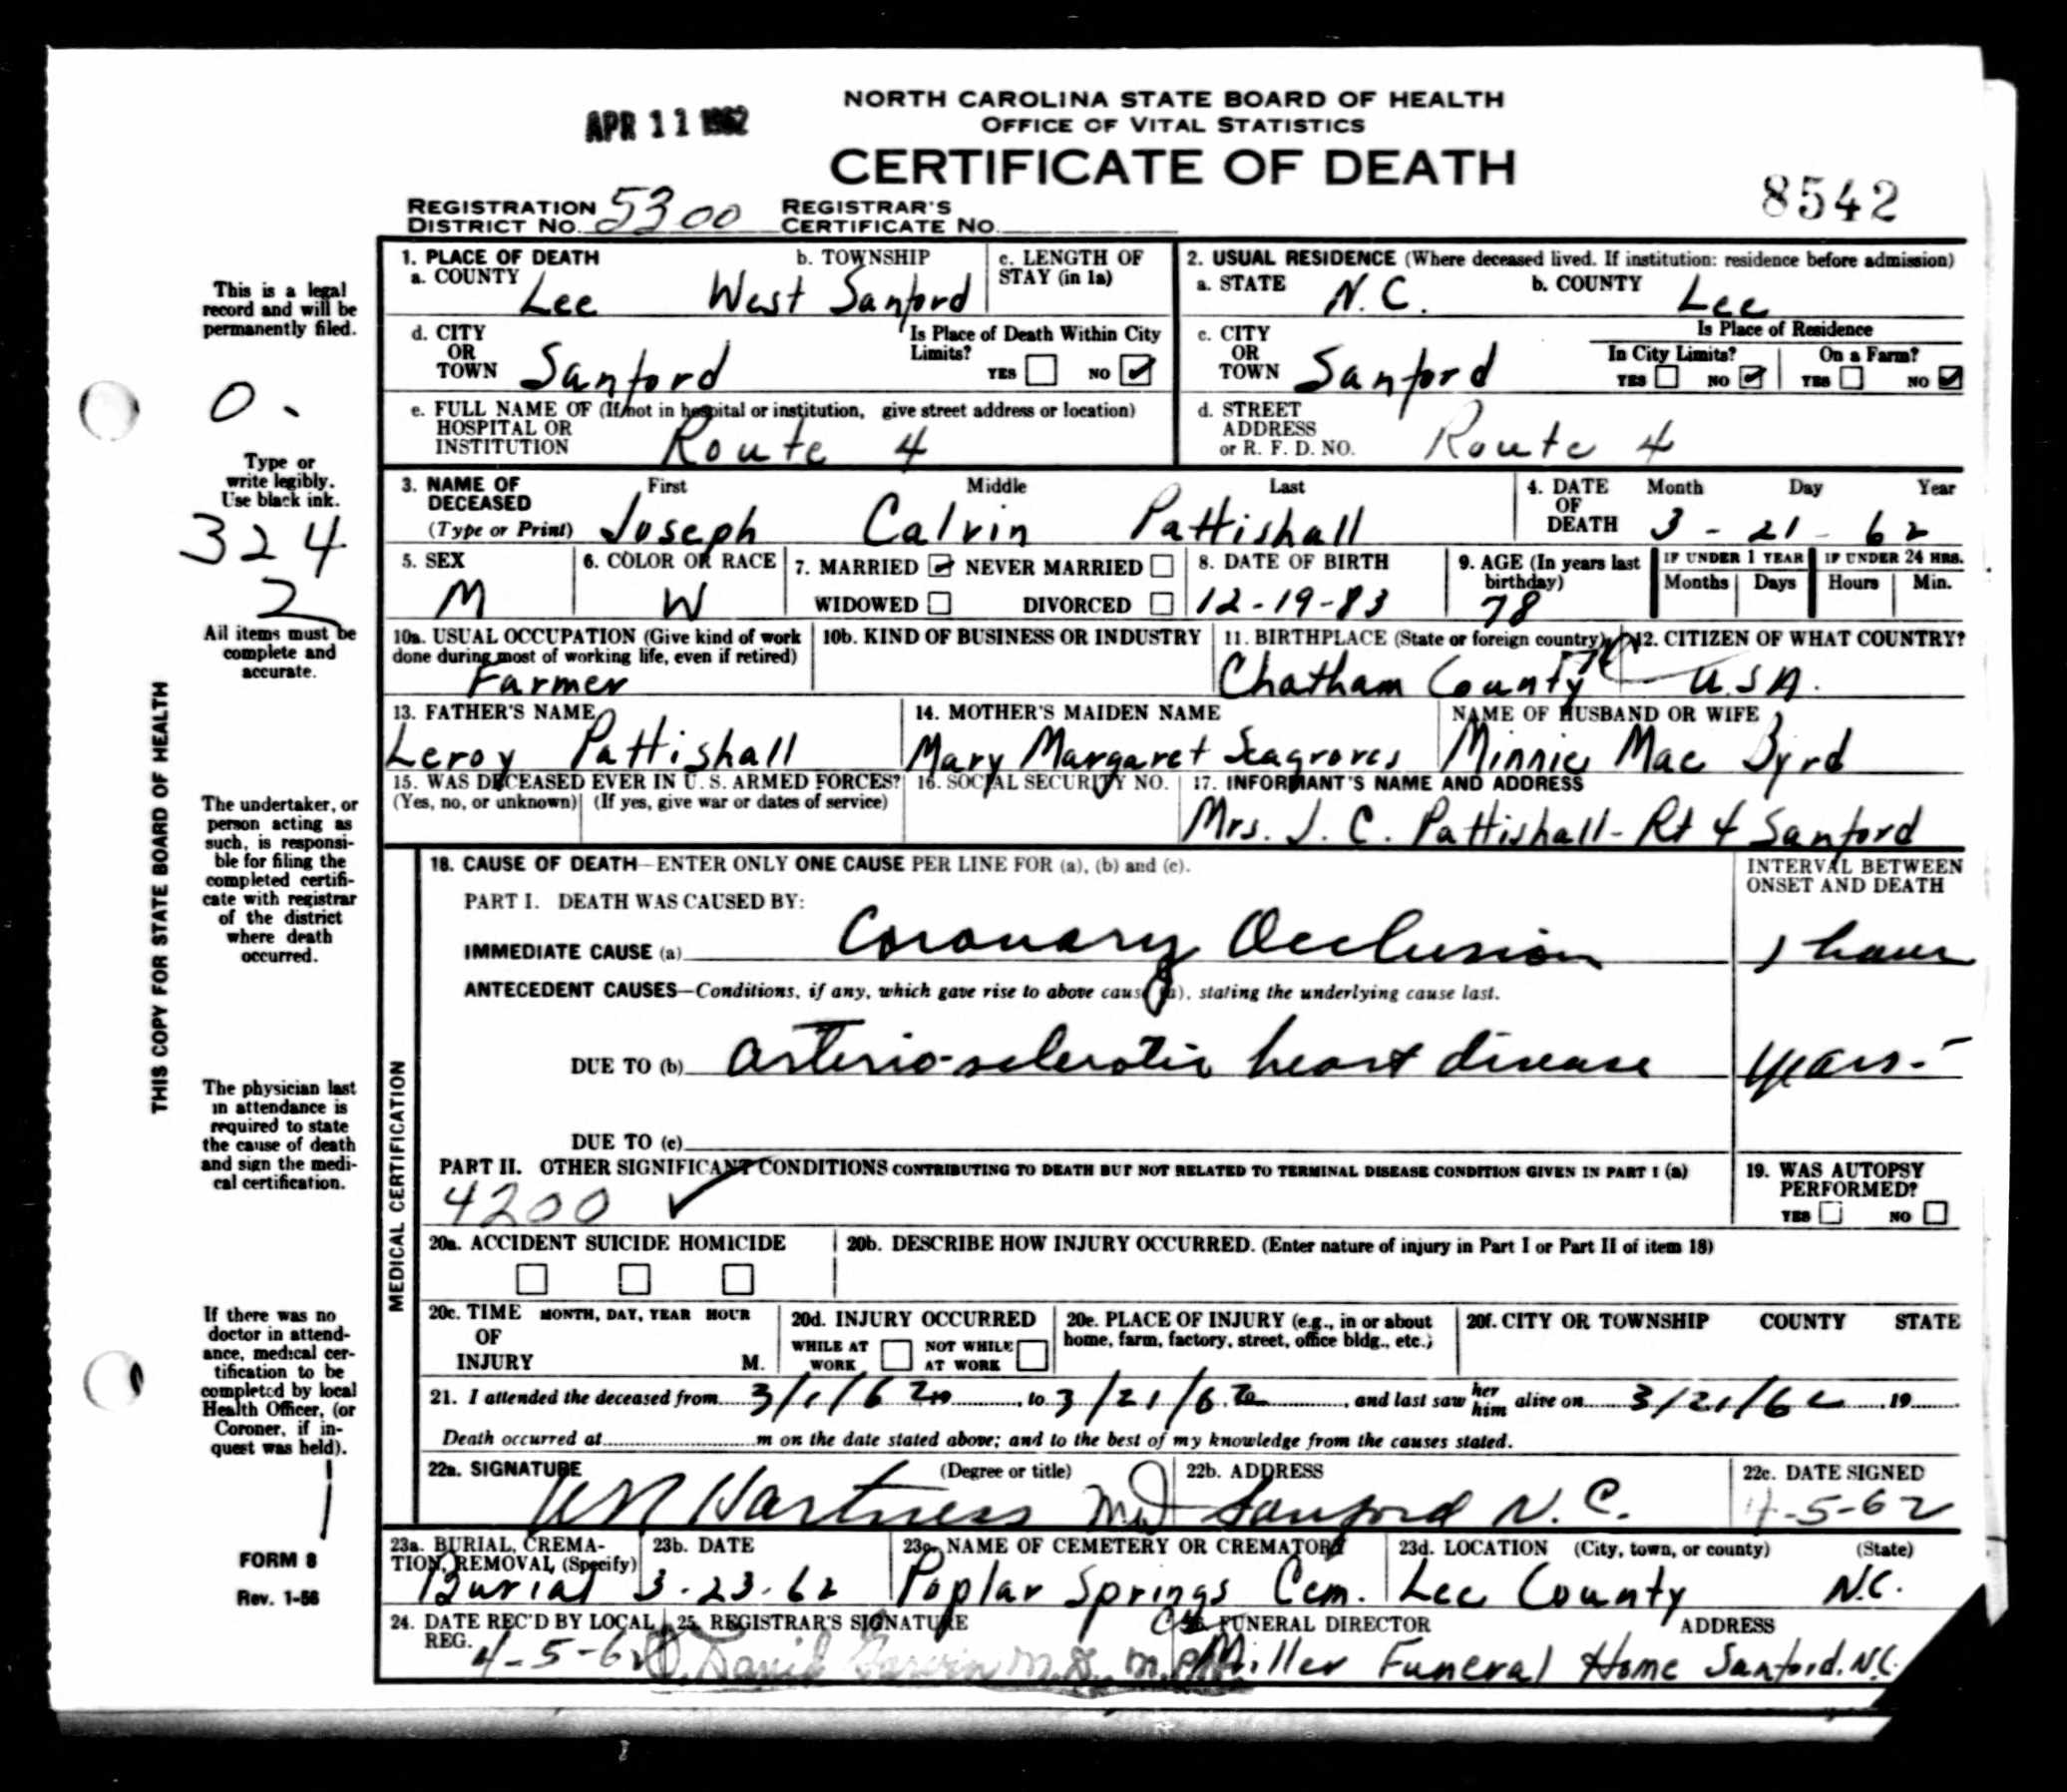 APR 11 1962
NORTH CAROLINA STATE BOARD OF HEALTH
OFFICE OF VITAL STATISTICS
CERTIFICATE OF DEATH
8542
REGISTRATION DISTRICT No. 5300 REGISTRAR'S CERTIFICATE No.
This is a legal
record and will be
permanently filed.
0.
Type or
write legibly.
Use black ink.
324
2
All items must be
complete and
accurate.
THIS COPY FOR STATE BOARD OF HEALTH
The undertaker, or
person acting as
such, is responsi-
ble for filing the
completed certifi-
cate with registrar
of the district
where death
occurred.
The physician last
in attendance is
required to state
the cause of death
and sign the medi-
cal certification.
If there was no
doctor in attend-
ance, medical cer-
tification to be
completed by local
Health Officer, (or
Coroner, if in-
quest was held).
1
FORM 8
Rev. 1-56
1. PLACE OF DEATH
a. COUNTY Lee b. TOWNSHIP West Sanford c. LENGTH OF STAY (in 1a)
2. USUAL RESIDENCE (Where deceased lived. If institution: residence before admission)
a. STATE N.C. b. COUNTY Lee
d. CITY OR TOWN Sanford Is Place of Death Within City Limits? YES NO ✓
c. CITY OR TOWN Sanford Is Place of Residence In City Limits? YES NO ✓ On a Farm? YES NO ✓
e. FULL NAME OF (If not in hospital or institution, give street address or location) HOSPITAL OR INSTITUTION Route 4
d. STREET ADDRESS or R. F. D. NO. Route 4
3. NAME OF DECEASED (Type or Print) First Joseph Middle Calvin Last Pattishall
4. DATE OF DEATH Month Day Year 3 - 21 - 62
5. SEX M 6. COLOR OR RACE W 7. MARRIED ✓ NEVER MARRIED WIDOWED DIVORCED
8. DATE OF BIRTH 12-19-83 9. AGE (In years last birthday) 78 IF UNDER 1 YEAR Months Days IF UNDER 24 HRS. Hours Min.
10a. USUAL OCCUPATION (Give kind of work done during most of working life, even if retired) Farmer
10b. KIND OF BUSINESS OR INDUSTRY
11. BIRTHPLACE (State or foreign country) Chatham County NC
12. CITIZEN OF WHAT COUNTRY? U.S.A.
13. FATHER'S NAME Leroy Pattishall
14. MOTHER'S MAIDEN NAME Mary Margaret Seagroves
NAME OF HUSBAND OR WIFE Minnie Mae Byrd
15. WAS DECEASED EVER IN U. S. ARMED FORCES? (Yes, no, or unknown) (If yes, give war or dates of service)
16. SOCIAL SECURITY NO.
17. INFORMANT'S NAME AND ADDRESS Mrs. J. C. Pattishall - Rt 4 Sanford
MEDICAL CERTIFICATION
18. CAUSE OF DEATH—ENTER ONLY ONE CAUSE PER LINE FOR (a), (b) and (c).
INTERVAL BETWEEN ONSET AND DEATH
PART I. DEATH WAS CAUSED BY:
IMMEDIATE CAUSE (a) Coronary Occlusion 1 hour
ANTECEDENT CAUSES—Conditions, if any, which gave rise to above cause (a), stating the underlying cause last.
DUE TO (b) arterio-sclerotic heart disease years-
DUE TO (c)
PART II. OTHER SIGNIFICANT CONDITIONS CONTRIBUTING TO DEATH BUT NOT RELATED TO TERMINAL DISEASE CONDITION GIVEN IN PART I (a)
4200 ✓
19. WAS AUTOPSY PERFORMED? YES NO
20a. ACCIDENT SUICIDE HOMICIDE
20b. DESCRIBE HOW INJURY OCCURRED. (Enter nature of injury in Part I or Part II of item 18)
20c. TIME OF INJURY MONTH, DAY, YEAR HOUR M.
20d. INJURY OCCURRED WHILE AT WORK NOT WHILE AT WORK
20e. PLACE OF INJURY (e.g., in or about home, farm, factory, street, office bldg., etc.)
20f. CITY OR TOWNSHIP COUNTY STATE
21. I attended the deceased from 3/1/62, to 3/21/62, and last saw her him alive on 3/21/62 19
Death occurred at m on the date stated above; and to the best of my knowledge from the causes stated.
22a. SIGNATURE (Degree or title) Hartness MD
22b. ADDRESS Sanford N. C.
22c. DATE SIGNED 4-5-62
23a. BURIAL, CREMATION, REMOVAL (Specify) Burial
23b. DATE 3-23-62
23c. NAME OF CEMETERY OR CREMATORY Poplar Springs Cem.
23d. LOCATION (City, town, or county) (State) Lee County N.C.
24. DATE REC'D BY LOCAL REG. 4-5-62
25. REGISTRAR'S SIGNATURE David Garvin M.D.
FUNERAL DIRECTOR ADDRESS Miller Funeral Home Sanford. N.C.